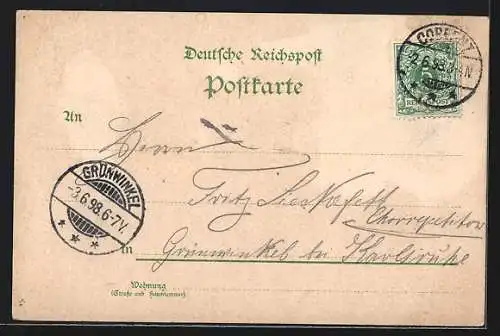 Deutsche Reichspost
Postkarte
COBLENZ
2.6.98.
5
REICHSPOST
An
Herrn
Fritz
Chorrepetitor
GRÜNWINKEL
-3.6.98.6-7V.
in Grünwinkel bei Karlsruhe
Wohnung
(Straße und Hausnummer)